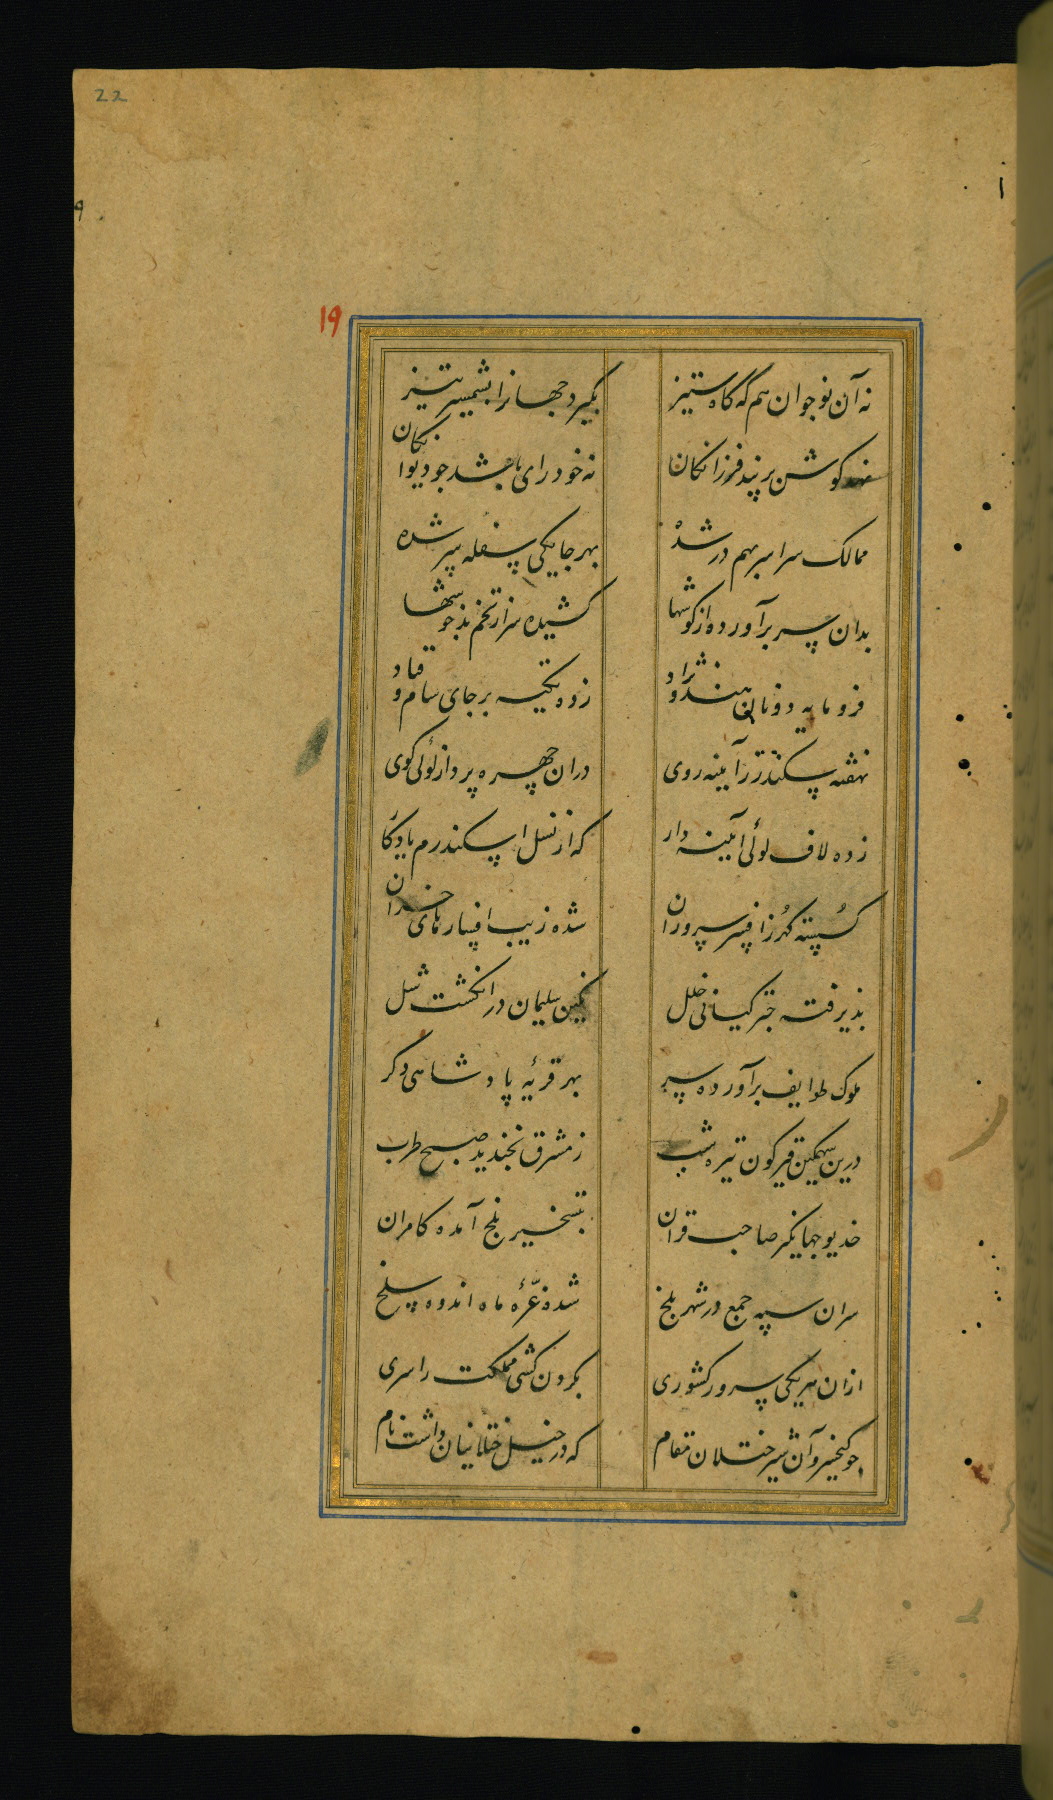 22
۱۹
نه آن نوجوان هم که گاه ستیز
بگیرد جهانرا بشمشیر تیز
نهد گوش بر پند فرزانگان
نه خود رای باشد چو دیوانگان
ممالک سراسر بهم در شده
بهر جا یکی سفله سر شده
بدان سر برآورده از گوشها
کشیده سر از تخم بد خوشها
فرومایه دونان هندو نژاد
زده تکیه بر جای سام و قباد
نهفته سکندر ز آیینه روی
دران چهره پرداز لولی کوی
زده لاف لولی آیینه دار
که از نسل اسکندرم یادگار
گسسته گهر ز افسر سروران
شده زیب افسارهای خران
پذیرفته چتر کیانی خلل
نگین سلیمان در انگشت شل
ملوک طوایف برآورده سر
بهر قریهٔ پادشاهی دگر
درین سهمگین قیرگون تیره شب
ز مشرق نخندید صبح طرب
خدیو جهانگیر صاحب قران
بتسخیر بلخ آمده کامران
سران سپه جمع در شهر بلخ
شده غرّهٔ ماه اندوه سلخ
ازان هر یکی سرور کشوری
بگردن کشی مملکت را سری
چو کیخسرو آن شیر ختلان مقام
که در خیل ختلانیان داشت نام